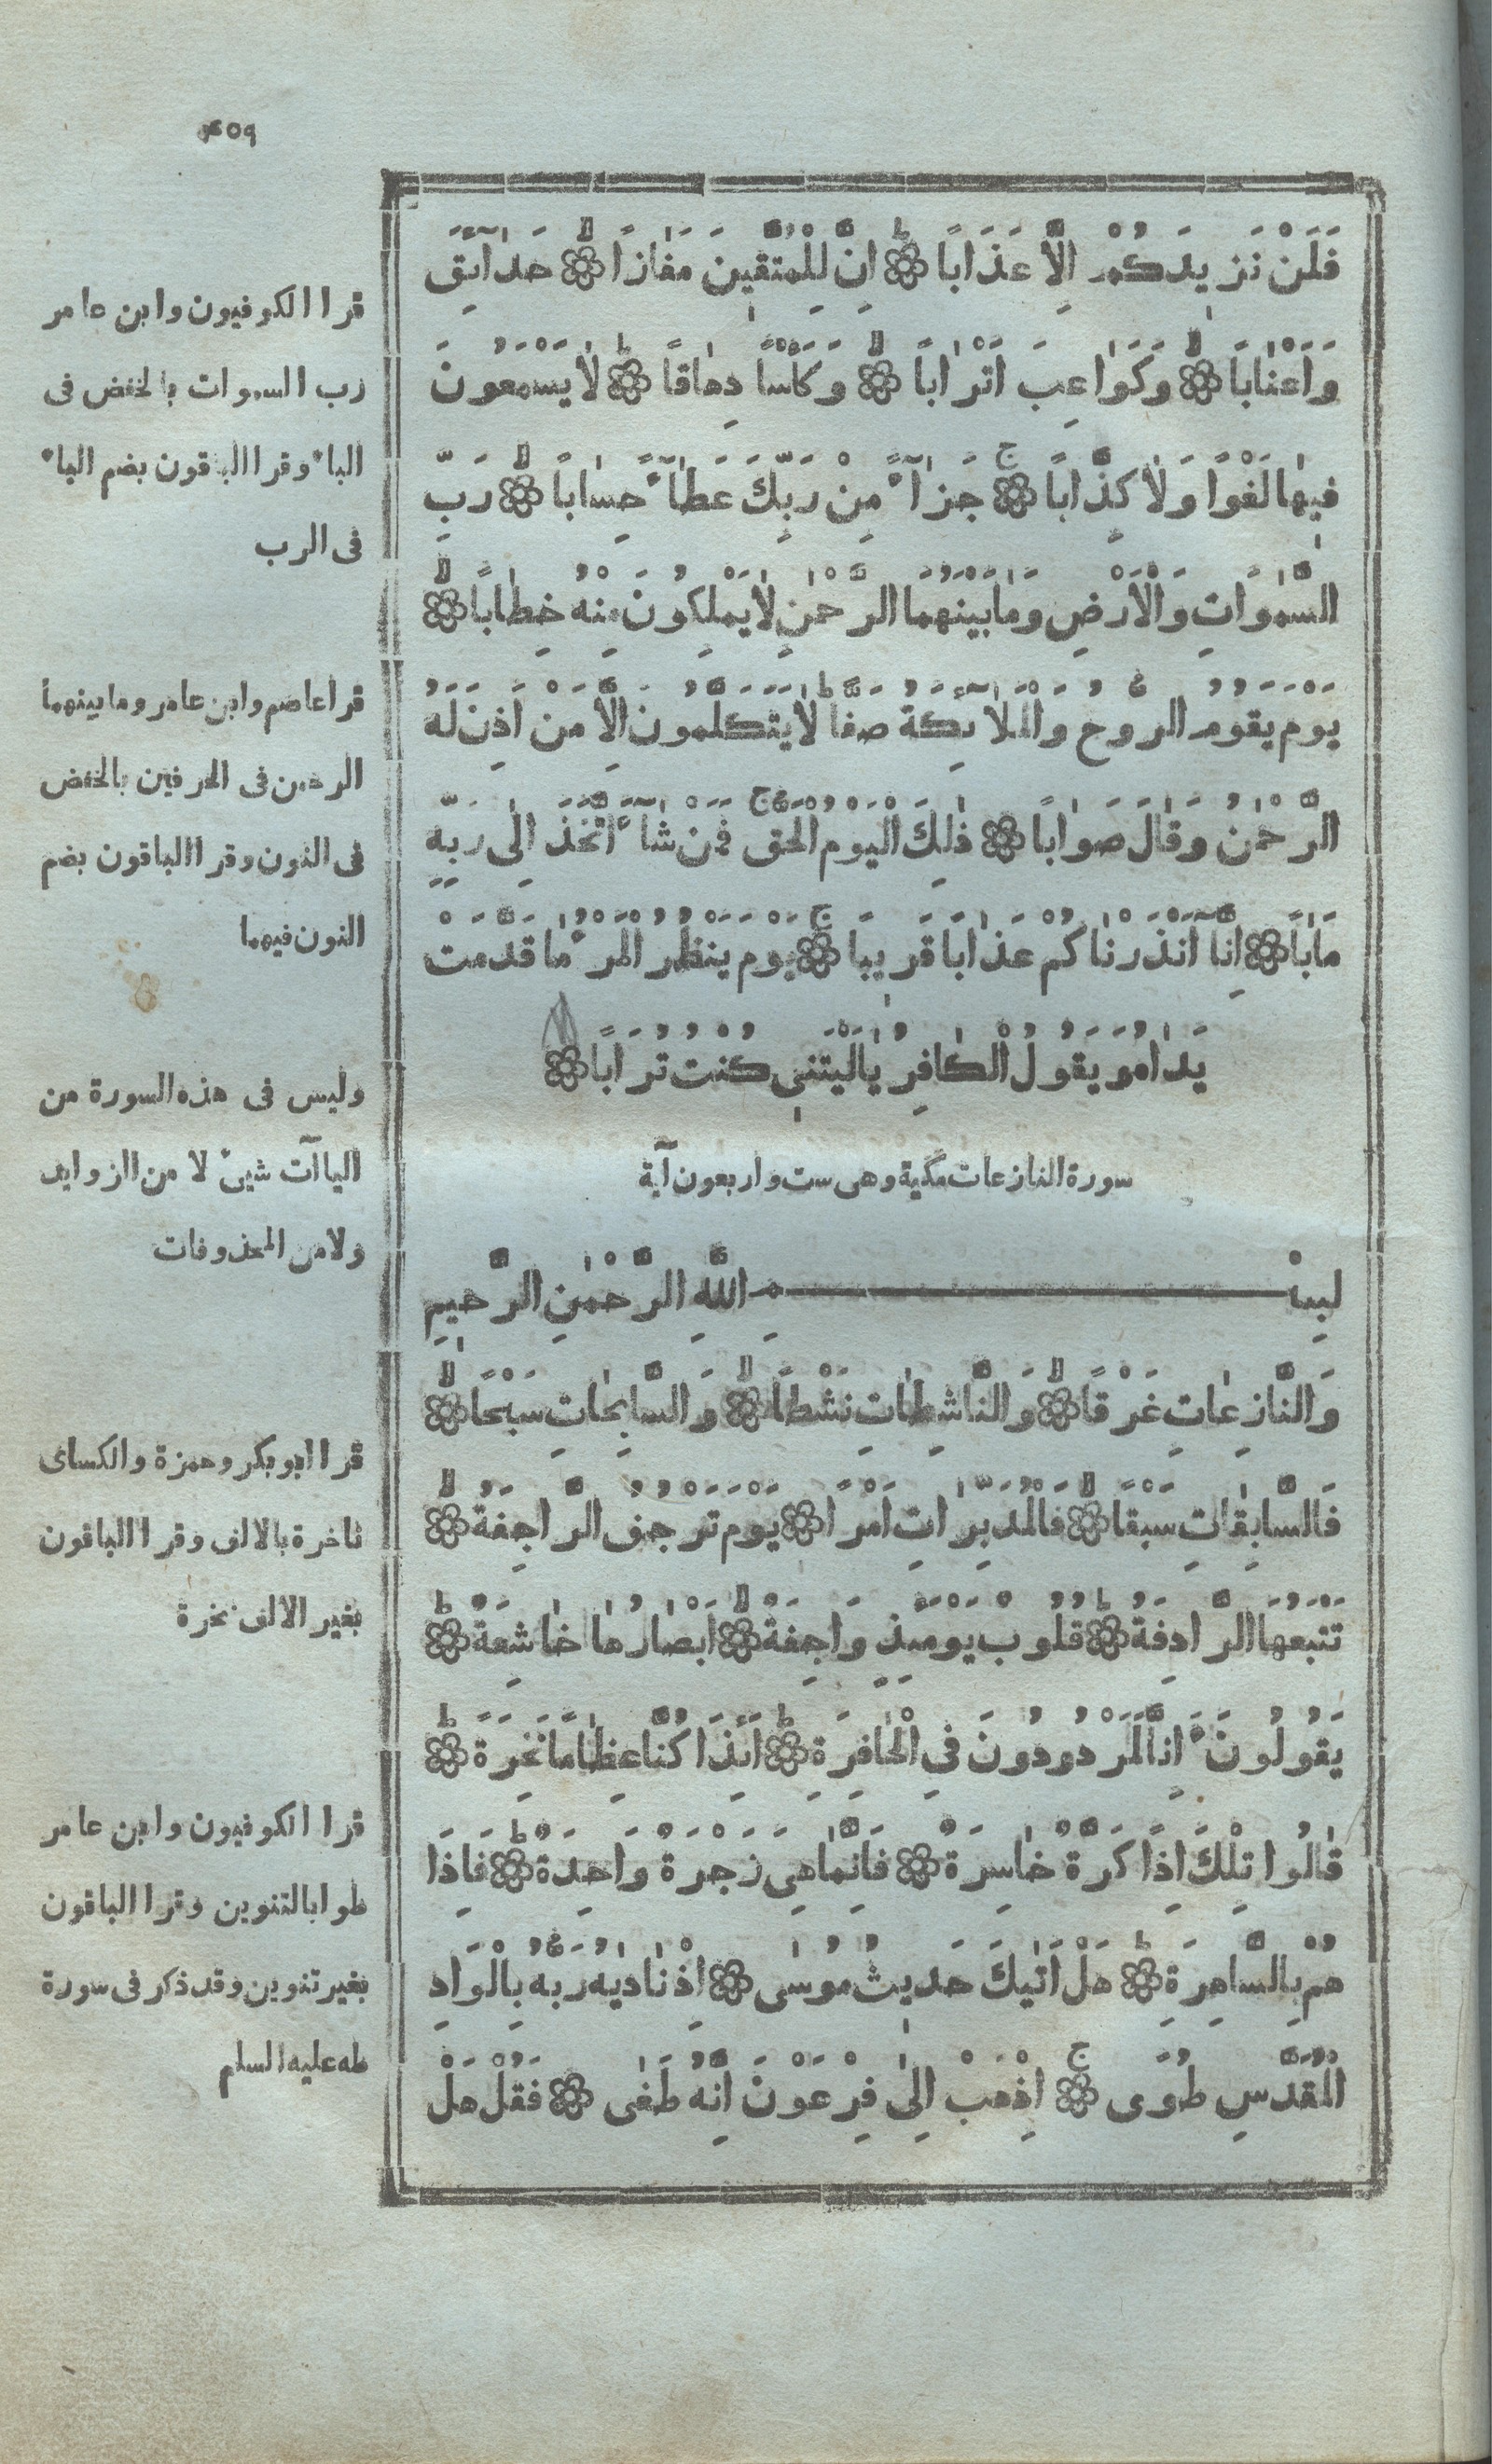 ٤٥٩
فَلَنْ نَزِيدَكُمْ اِلَّا عَذَابًا ۞ اِنَّ لِلْمُتَّقِينَ مَفَازًا ۞ حَدَآئِقَ
وَاَعْنَابًا ۞ وَكَوَاعِبَ اَتْرَابًا ۞ وَكَأْسًا دِهَاقًا ۞ لَا يَسْمَعُونَ
فِيهَا لَغْوًا وَلَا كِذَّابًا ۞ جَزَآءً مِنْ رَبِّكَ عَطَآءً حِسَابًا ۞ رَبِّ
السَّمٰوَاتِ وَالْاَرْضِ وَمَا بَيْنَهُمَا الرَّحْمٰنِ لَا يَمْلِكُونَ مِنْهُ خِطَابًا ۞
يَوْمَ يَقُومُ الرُّوحُ وَالْمَلَائِكَةُ صَفًّا لَا يَتَكَلَّمُونَ اِلَّا مَنْ اَذِنَ لَهُ
الرَّحْمٰنُ وَقَالَ صَوَابًا ۞ ذٰلِكَ الْيَوْمُ الْحَقُّ فَمَنْ شَآءَ اتَّخَذَ اِلٰى رَبِّهِ
مَاٰبًا ۞ اِنَّآ اَنْذَرْنَاكُمْ عَذَابًا قَرِيبًا ۞ يَوْمَ يَنْظُرُ الْمَرْءُ مَا قَدَّمَتْ
يَدَاهُ وَيَقُولُ الْكَافِرُ يَا لَيْتَنِى كُنْتُ تُرَابًا ۞
سورة النازعات مكية وهى ست واربعون آية
بِسْمِ اللّٰهِ الرَّحْمٰنِ الرَّحِيمِ
وَالنَّازِعَاتِ غَرْقًا ۞ وَالنَّاشِطَاتِ نَشْطًا ۞ وَالسَّابِحَاتِ سَبْحًا ۞
فَالسَّابِقَاتِ سَبْقًا ۞ فَالْمُدَبِّرَاتِ اَمْرًا ۞ يَوْمَ تَرْجُفُ الرَّاجِفَةُ ۞
تَتْبَعُهَا الرَّادِفَةُ ۞ قُلُوبٌ يَوْمَئِذٍ وَاجِفَةٌ ۞ اَبْصَارُهَا خَاشِعَةٌ ۞
يَقُولُونَ ءَاِنَّا لَمَرْدُودُونَ فِى الْحَافِرَةِ ۞ اَئِذَا كُنَّا عِظَامًا نَخِرَةً ۞
قَالُوا تِلْكَ اِذًا كَرَّةٌ خَاسِرَةٌ ۞ فَاِنَّمَا هِىَ زَجْرَةٌ وَاحِدَةٌ ۞ فَاِذَا
هُمْ بِالسَّاهِرَةِ ۞ هَلْ اَتٰيكَ حَدِيثُ مُوسٰى ۞ اِذْ نَادٰيهُ رَبُّهُ بِالْوَادِ
الْمُقَدَّسِ طُوًى ۞ اِذْهَبْ اِلٰى فِرْعَوْنَ اِنَّهُ طَغٰى ۞ فَقُلْ هَلْ
قرا الكوفيون وابن عامر
رب السموات بالخفض فى
الباء وقرا الباقون بضم الباء
فى الرب
قرا عاصم وابن عامر وما بينهما
الرحمن فى الحرفين بالخفض
فى النون وقرا الباقون بضم
النون فيهما
وليس فى هذه السورة من
الياآت شىء لا من الزوايد
ولا من المحذوفات
قرا ابو بكر وحمزة والكساى
ناخرة بالالف وقرا الباقون
بغير الالف نخرة
قرا الكوفيون وابن عامر
طوا بالتنوين وقرا الباقون
بغير تنوين وقد ذكر فى سورة
طه عليه السلم